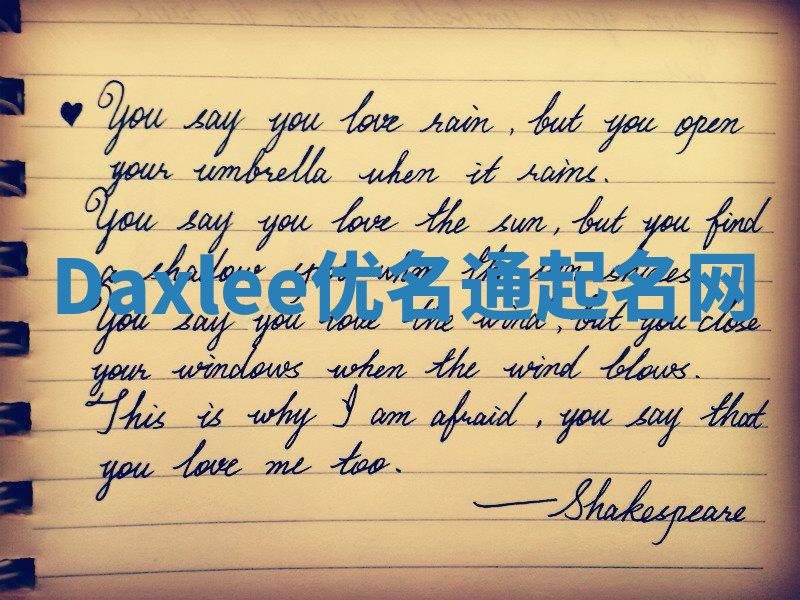 ♥ You say you love rain, but you open
your umbrella when it rains.
You say you love the sun, but you find
a shadow spot when the sun shines.
Daxlee优名通起名网
You say you love the wind, but you close
your windows when the wind blows.
This is why I am afraid, you say that
you love me too.
— Shakespeare